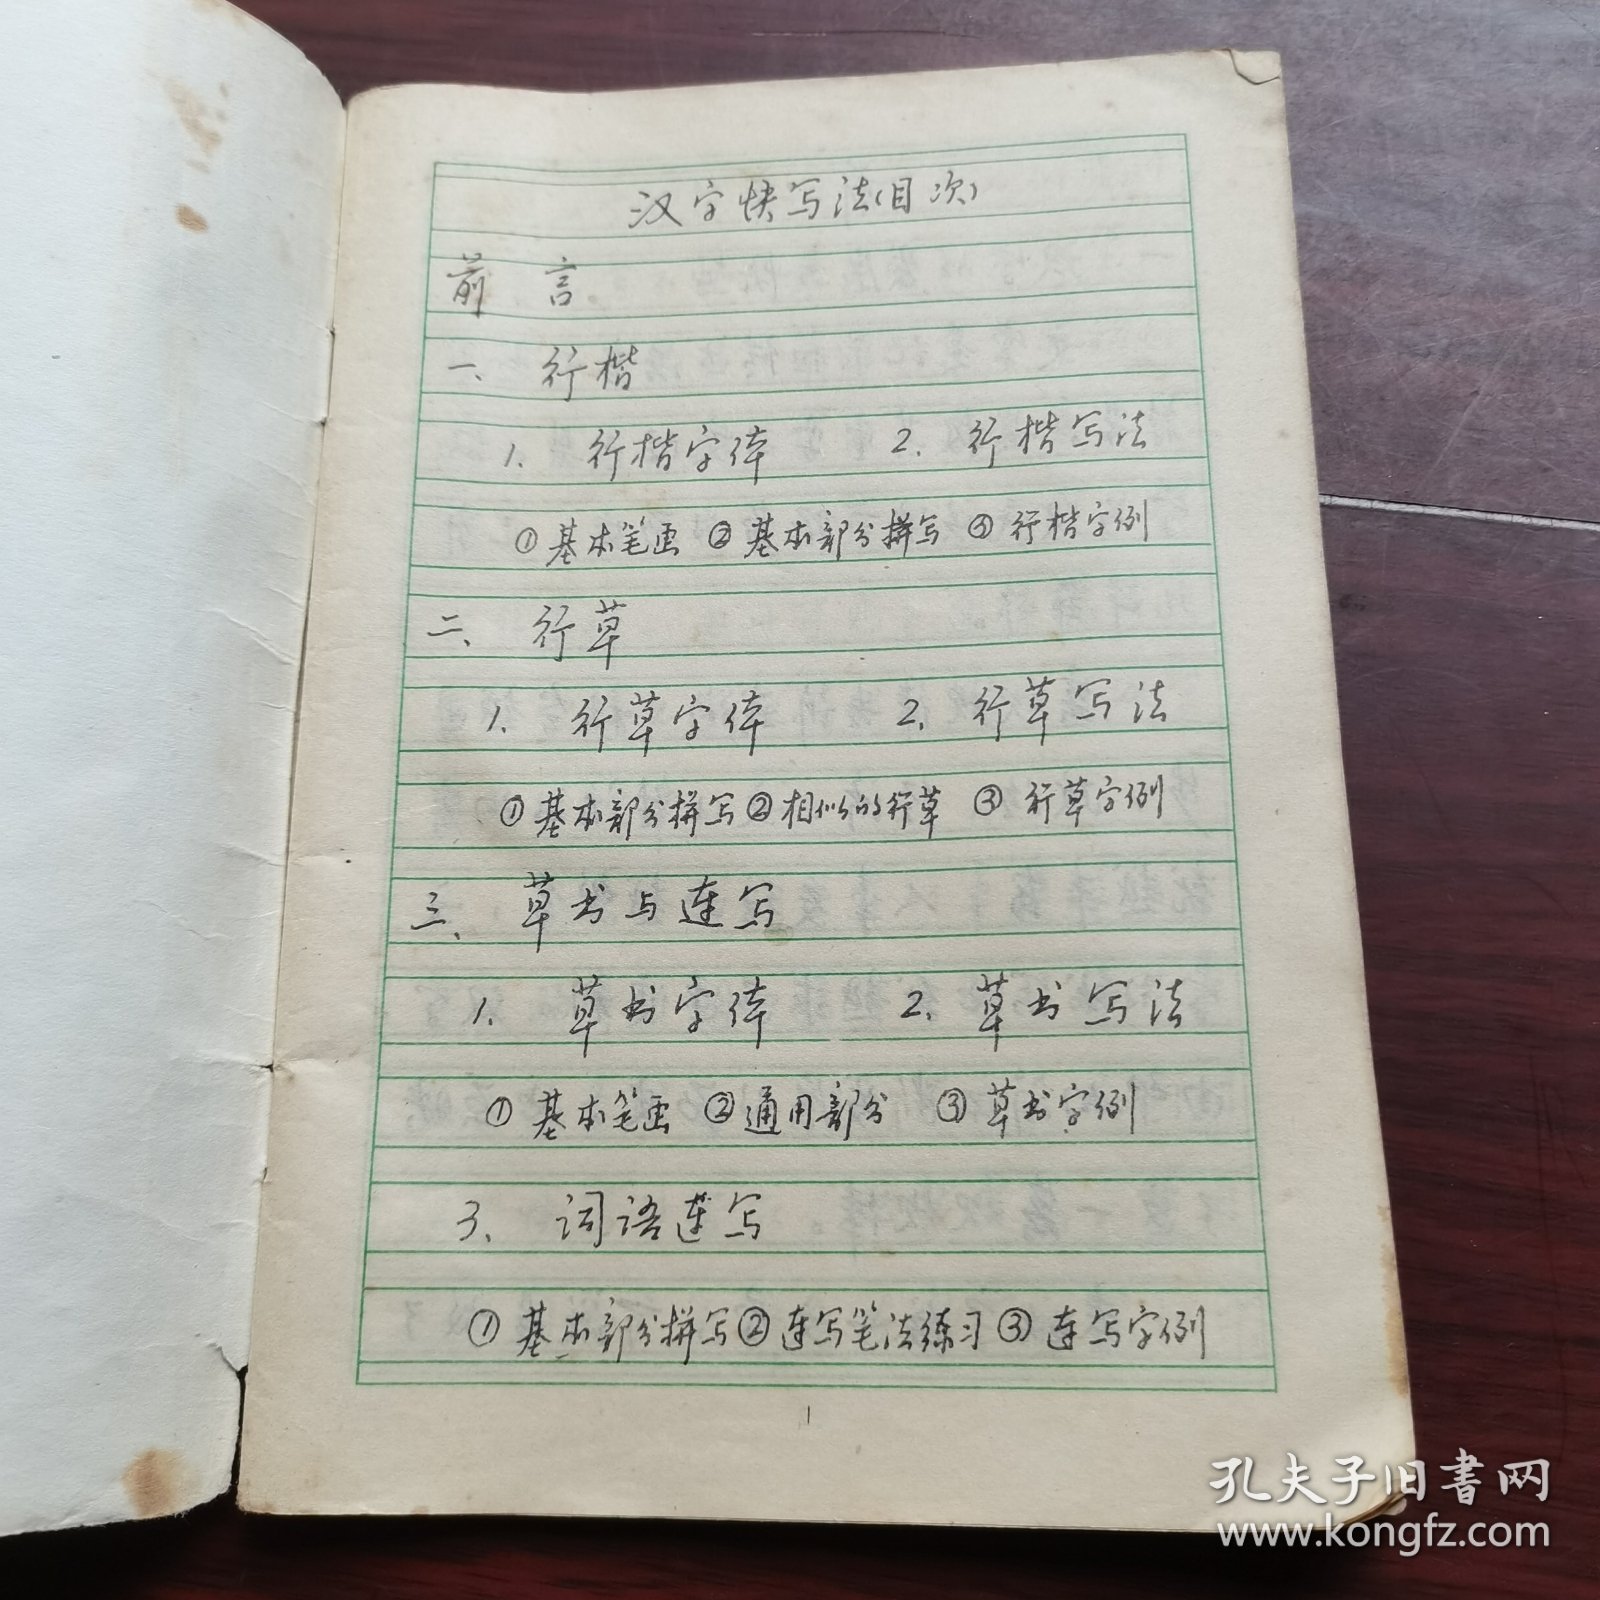 汉字快写法(目次)
前 言
一、 行楷
1. 行楷字体 2. 行楷写法
①基本笔画 ②基本部分拼写 ③行楷字例
二、 行草
1. 行草字体 2. 行草写法
①基本部分拼写②相似的行草 ③行草字例
三、 草书与连写
1. 草书字体 2. 草书写法
①基本笔画 ②通用部分 ③草书字例
3、 词语连写
①基本部分拼写②连写笔法练习③连写字例
1
孔夫子旧书网
www.kongfz.com